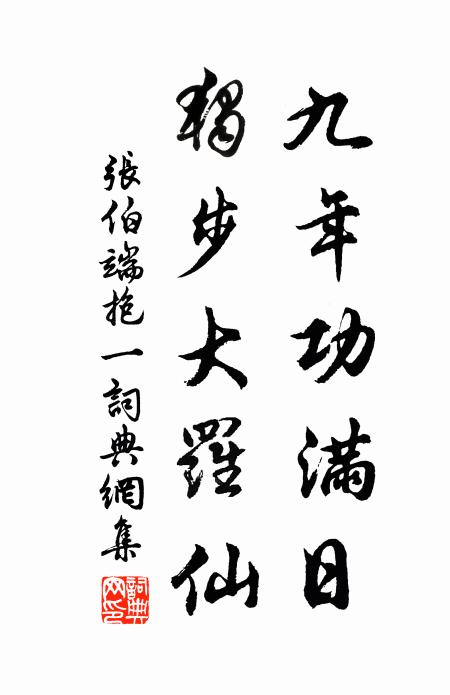 九年功满日
獨步大羅仙
張伯端抱一詞典網集
詞典网印